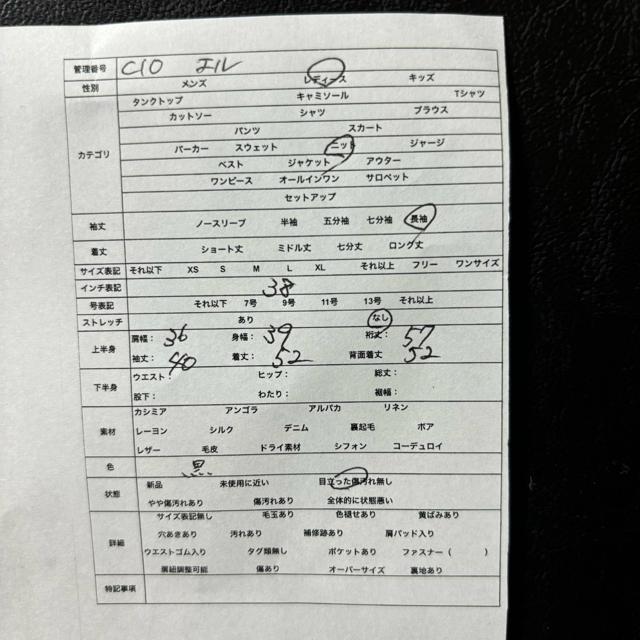 管理番号 C10 エル
性別 メンズ レディース キッズ
カテゴリ タンクトップ キャミソール Tシャツ
カットソー シャツ ブラウス
パンツ スカート
パーカー スウェット ニット ジャージ
ベスト ジャケット アウター
ワンピース オールインワン サロペット
セットアップ
袖丈 ノースリーブ 半袖 五分袖 七分袖 長袖
着丈 ショート丈 ミドル丈 七分丈 ロング丈
サイズ表記 それ以下 XS S M L XL それ以上 フリー ワンサイズ
インチ表記 38
号表記 それ以下 7号 9号 11号 13号 それ以上
ストレッチ あり なし
上半身 肩幅: 36 身幅: 39 裄丈: 57
袖丈: 40 着丈: 52 背面着丈 52
下半身 ウエスト: ヒップ: 総丈:
股下: わたり: 裾幅:
素材 カシミア アンゴラ アルパカ リネン
レーヨン シルク デニム 裏起毛 ボア
レザー 毛皮 ドライ素材 シフォン コーデュロイ
色 黒
状態 新品 未使用に近い 目立った傷汚れ無し
やや傷汚れあり 傷汚れあり 全体的に状態悪い
詳細 サイズ表記無し 毛玉あり 色褪せあり 黄ばみあり
穴あきあり 汚れあり 補修跡あり 肩パッド入り
ウエストゴム入り タグ類無し ポケットあり ファスナー( )
肩紐調整可能 傷あり オーバーサイズ 裏地あり
特記事項